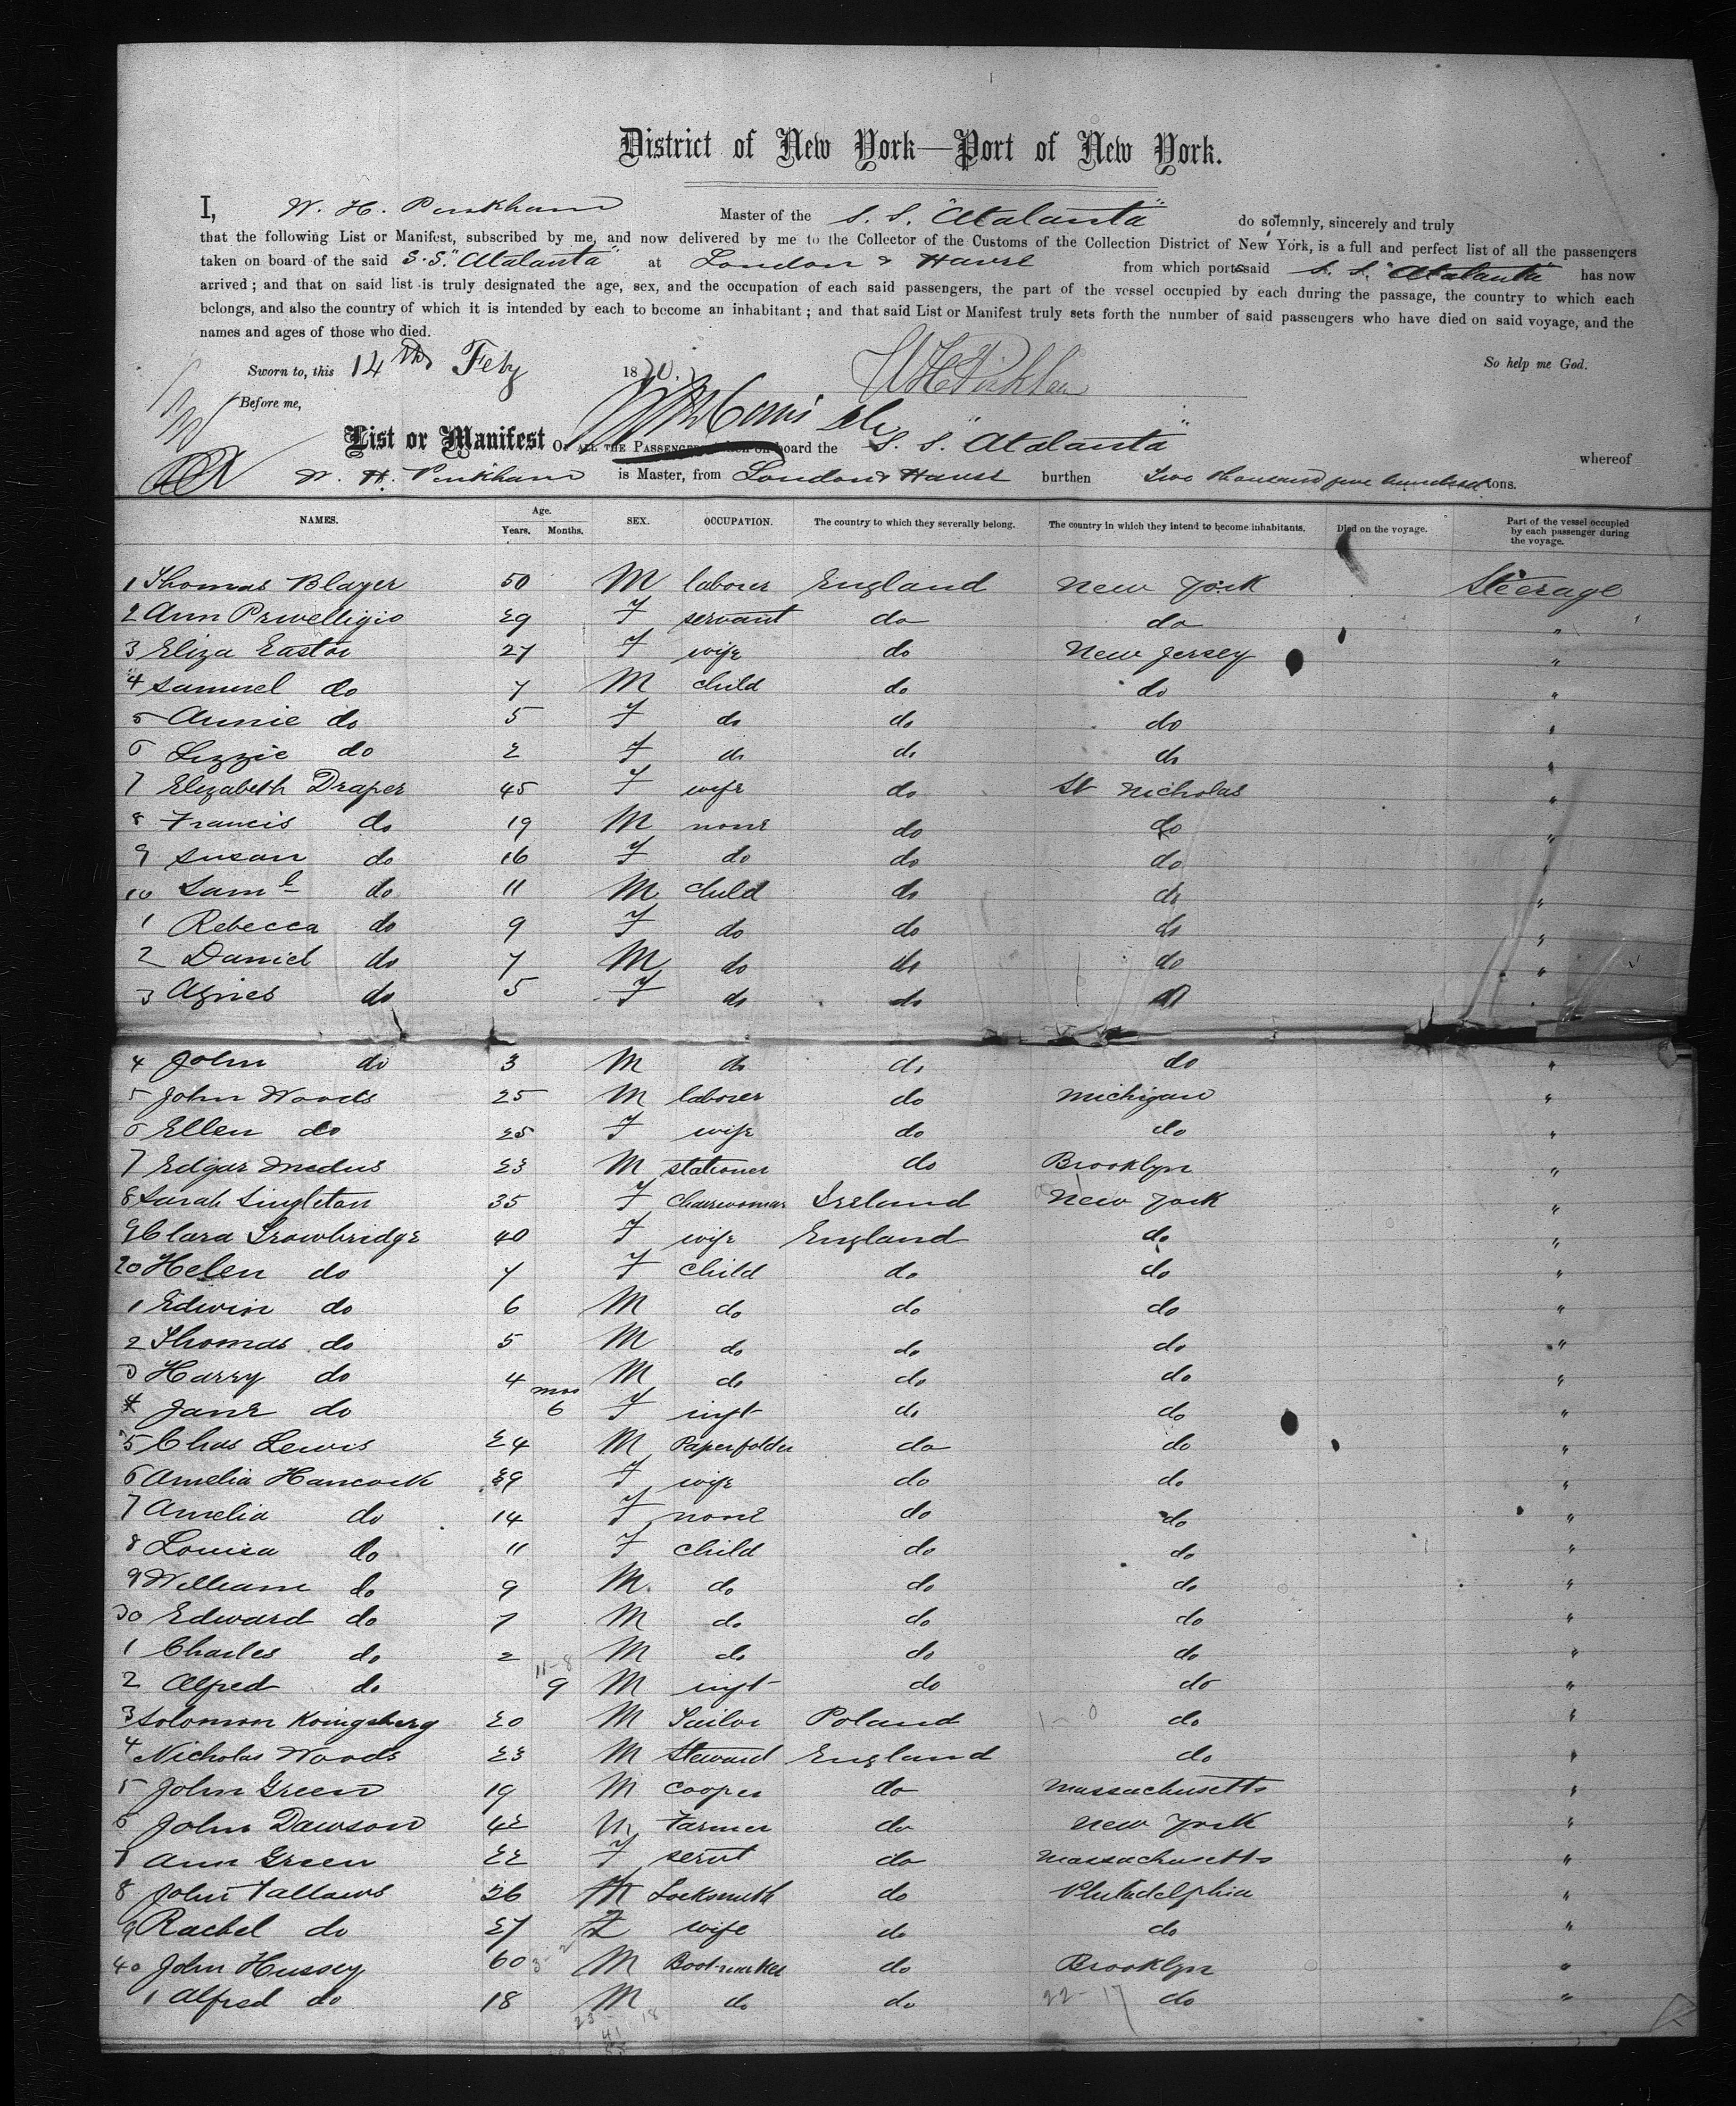 District of New York—Port of New York.
I, W. H. Pinkham Master of the S. S. "Atalanta" do solemnly, sincerely and truly
that the following List or Manifest, subscribed by me, and now delivered by me to the Collector of the Customs of the Collection District of New York, is a full and perfect list of all the passengers
taken on board of the said S. S. "Atalanta" at London & Havre from which ports said S. S. "Atalanta" has now
arrived; and that on said list is truly designated the age, sex, and the occupation of each said passengers, the part of the vessel occupied by each during the passage, the country to which each
belongs, and also the country of which it is intended by each to become an inhabitant; and that said List or Manifest truly sets forth the number of said passengers who have died on said voyage, and the
names and ages of those who died.
So help me God.
Sworn to, this 14th Feby 1870. W H Pinkham
Before me,
List or Manifest OF ALL THE PASSENGERS taken on board the S. S. "Atalanta" whereof
W. H. Pinkham is Master, from London & Havre burthen Two thousand five hundred tons.
NAMES. Age. Years. Months. SEX. OCCUPATION. The country to which they severally belong. The country in which they intend to become inhabitants. Died on the voyage. Part of the vessel occupied by each passenger during the voyage.
1 Thomas Blayer 50 M laborer England New York Steerage
2 Ann 29 F servant do do "
3 Eliza Easton 27 F wife do New Jersey "
4 Samuel do 7 M child do do "
5 Annie do 5 F do do do "
6 Lizzie do 2 F do do do "
7 Elizabeth Draper 45 F wife do St Nicholas "
8 Francis do 19 M none do do "
9 Susan do 16 F do do do "
10 Saml do 11 M child do do "
1 Rebecca do 9 F do do do "
2 Daniel do 7 M do do do "
3 Agnes do 5 F do do do "
4 John do 3 M do do do "
5 John Woods 25 M laborer do Michigan "
6 Ellen do 25 F wife do do "
7 Edgar Medus 23 M stationer do Brooklyn "
8 Sarah Singleton 35 F Charwoman Ireland New York "
9 Clara Trowbridge 40 F wife England do "
20 Helen do 7 F child do do "
1 Edwin do 6 M do do do "
2 Thomas do 5 M do do do "
3 Harry do 4 M do do do "
4 Jane do mos 6 F inft do do "
5 Chas Lewis 24 M Paperfolder do do "
6 Amelia Hancock 39 F wife do do "
7 Amelia do 14 F none do do "
8 Louisa do 11 F child do do "
9 William do 9 M do do do "
30 Edward do 7 M do do do "
1 Charles do 2 M do do do "
11-8
2 Alfred do 9 M inft do do "
3 Solomon Koingsberg 20 M Tailor Poland 1-0 do "
4 Nicholas Woods 23 M Steward England do "
5 John Green 19 M Cooper do Massachusetts "
6 John Dawson 42 M Farmer do New York "
7 Ann Green 22 F servt do Massachusetts "
8 John Fallows 26 M Locksmith do Philadelphia "
9 Rachel do 27 F wife do do "
40 John Hussey 60 M Bootmaker do Brooklyn "
1 Alfred do 18 M do do 22-17 do "
23 18
41